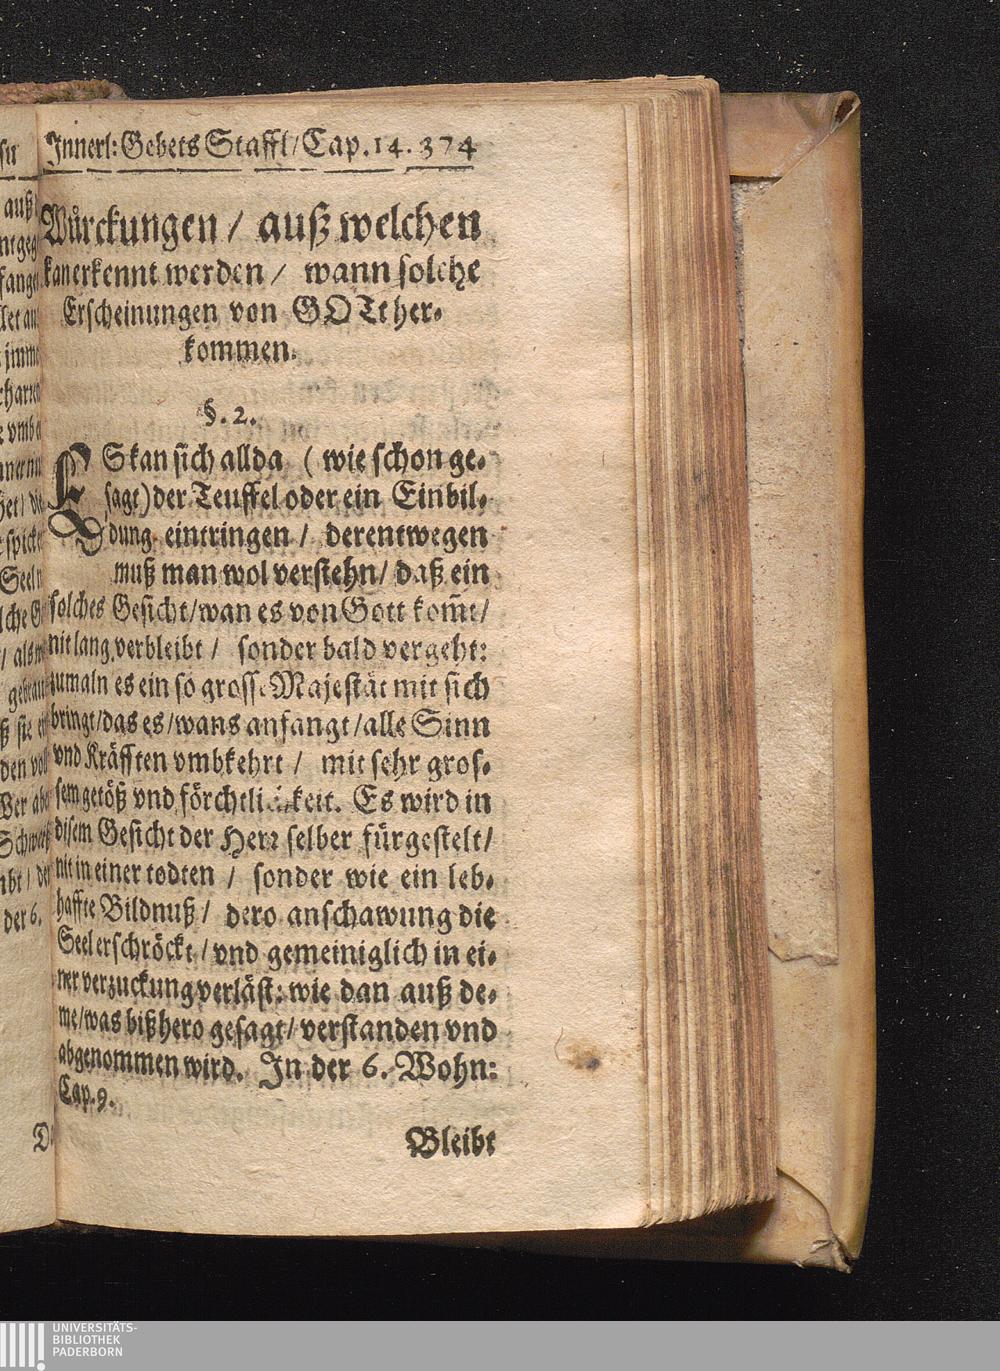 Innerl: Gebets Staffl / Cap. 14. 374
Würckungen / auß welchen
kan erkennt werden / wann solche
Erscheinungen von GOTt her-
kommen.
§. 2.
ES kan sich allda ( wie schon ge-
sagt) der Teuffel oder ein Einbil-
dung eintringen / derentwegen
muß man wol verstehn / daß ein
solches Gesicht / wan es von Gott kom̃t /
nit lang verbleibt / sonder bald vergeht:
zumaln es ein so grosse Majestät mit sich
bringt / das es / wans anfangt / alle Sinn
vnd Kräfften vmbkehrt / mit sehr gros-
sem getöß vnd förchtlichkeit. Es wird in
disem Gesicht der Herr selber fürgestelt /
nit in einer todten / sonder wie ein leb-
haffte Bildnuß / dero anschawung die
Seel erschröckt / vnd gemeiniglich in ei-
ner verzuckung verläst: wie dan auß de-
me / was bißhero gesagt / verstanden vnd
abgenommen wird. In der 6. Wohn:
Cap. 9.
Bleibt
UNIVERSITÄTS-
BIBLIOTHEK
PADERBORN